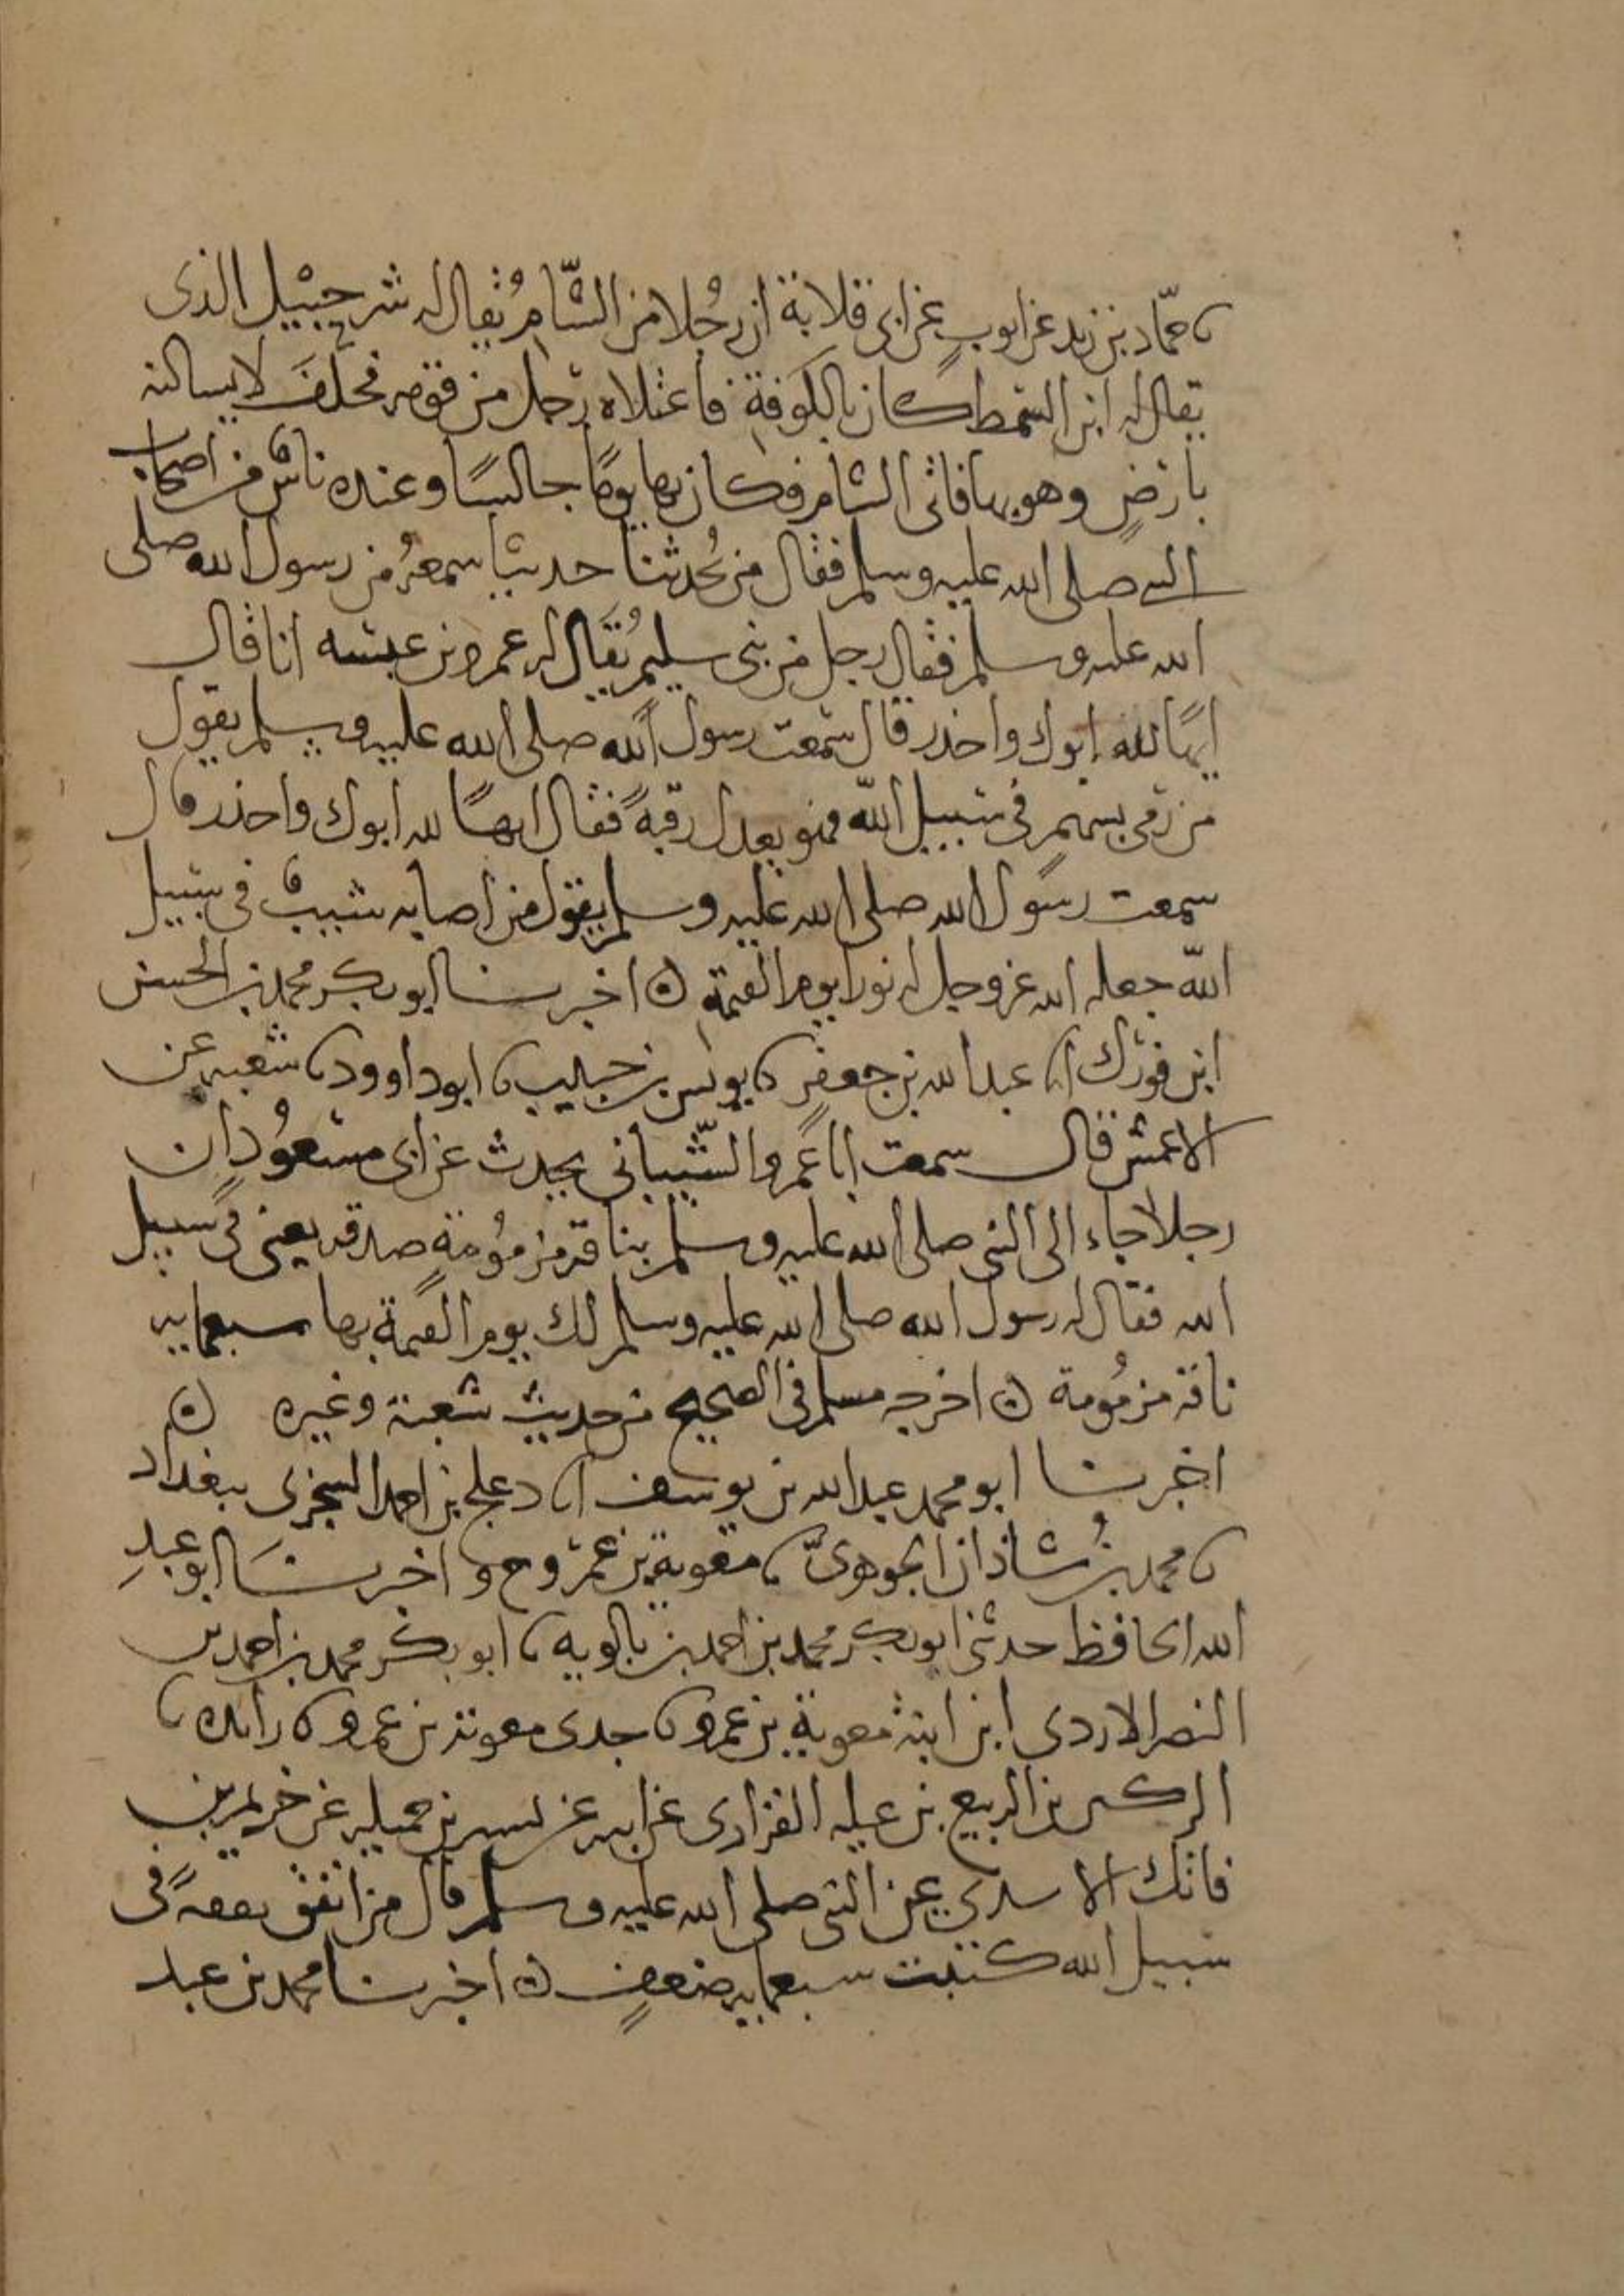 نا حمّاد بن زيد عن ايوب عن ابى قلابة ان رجُلا من الشّام يُقال له شرحبيل الذى
يقال له ابن السمط كان بالكوفة فاعتلاه رجل من قومه فحلفَ لا يساكنه
بارضٍ وهو بها فاتى الشام فكان بها يومًا جالسًا وعنده ناسٌ من اصحاب
النبي صلى الله عليه وسلم فقال من يُحدثنا حديثا سمعهُ من رسول الله صلى
الله عليه وسلم فقال رجل من بنى سليم يُقَال له عمرو بن عبسه انا قال
ايهًا لله ابوك واحذر قال سمعت رسول الله صلى الله عليه وسلم يقول
من رمى بسهم فى سبيل الله فهو يعدل رقبةً فقال ايهًا لله ابوك واحذر قال
سمعت رسول الله صلى الله عليه وسلم يقول من اصابه شيبٌ فى سبيل
اللّه جعله الله عز وجل له نورا يوم القيمة ۞ اخبرنا ابو بكر محمد بن الحسن
ابن فورك انا عبد الله بن جعفر نا يونس بن حبيب نا ابو داوود نا شعبه عن
الاعمش قال سمعت ابا عَمرو الشّيبانى يحدث عن ابى مسعُود ان
رجلا جاء الى النبى صلى الله عليه وسلم بناقه مزمُومة صدقه يعنى فى سبيل
الله فقال له رسول الله صلى الله عليه وسلم لك يوم القيمة بها سبعمايه
ناقه مزمُومة ۞ اخرجه مسلم فى الصحيح من حديث شعبة وغيره ۞
اخبرنا ابو محمد عبد الله بن يوسف انا دعلج بن احمد السجزى ببغداد
نا محمد بن شاذان الجوهرىّ نا معوية بن عمرو ح و اخبرنَا ابو عبدِ
الله الحافظ حدثنى ابو بكر محمد بن احمد بن بالويه نا ابو بكر محمد بن احمد بن
النضر الازدى ابن ابنة معوية بن عمرو نا جدى معوية بن عمرو نا زايده نا
الركين بن الربيع بن عميله الفزارى عن ابيه عن يسير بن عميله عن خريم بن
فاتك الاسدي عن النبى صلى الله عليه وسلم قال من انفق نفقةً فى
سبيل الله كتبت سبعمايه ضعفٍ ۞ اخبرنا محمد بن عبد